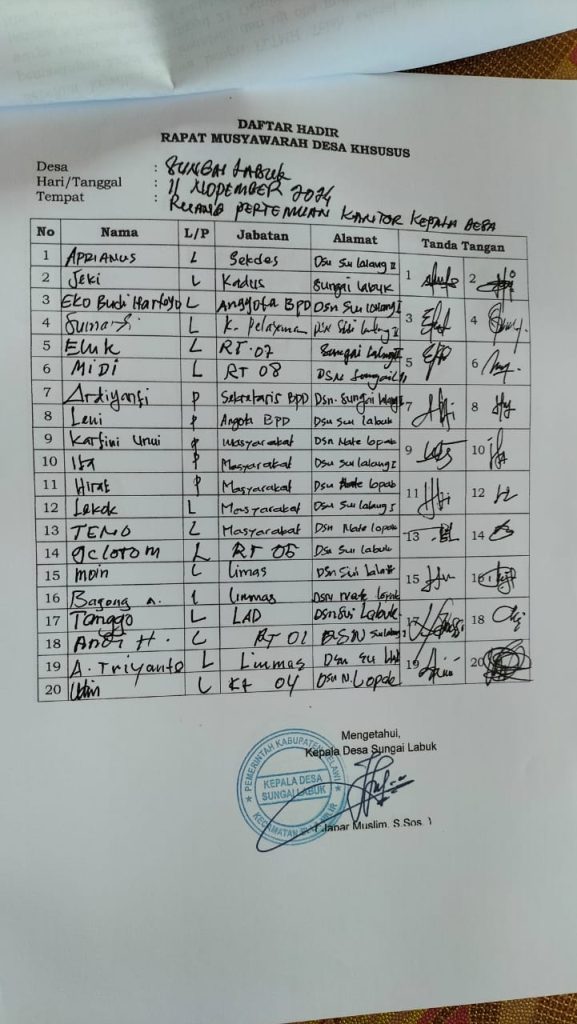 DAFTAR HADIR
RAPAT MUSYAWARAH DESA KHSUSUS
Desa : SUNGAI LABUK
Hari/Tanggal : 11 NOPEMBER 2024
Tempat : RUANG PERTEMUAN KANTOR KEPALA DESA
No Nama L/P Jabatan Alamat Tanda Tangan
1 APRIANUS L Sekdes Dsn Sui lalang II 1 2
2 Jeki L Kadus Sungai labuk
3 EKO Budi Hartoyo L Anggota BPD Dsn Sui lalang I 3 4
4 Sumardi L K. Pelayanan Dsn Sui lalang I
5 L RT. 07 Sungai lalang II 5 6
6 MIDI L RT 08 DSN Sungai
7 Ardiyanti P Sekretaris BPD Dsn. Sungai lalang I 7 8
8 Leni P Angota BPD Dsn Sui labuk
9 Kartini P Masyarakat Dsn Nate lopak 9 10
10 Ita P Masyarakat Dsn Sui lalang I
11 P Masyarakat Dsn Nate lopak 11 12
12 Lekok L Masyarakat Dsn Sui lalang I
13 TENO L Masyarakat Dsn Nate lopak 13 14
14 L RT 05 Dsn Sui labuk
15 Moin L Limas Dsn Sui 15 16
16 Bagong A. L Linmas DSN Nate lopak
17 Tanggo L LAD Dsn Sui Labuk 17 18
18 Andi H. L RT 01 DSN Sui lalang
19 A. Triyanto L Linmas Dsn Sui 19 20
20 L RT 04 Dsn N. Lopak
Mengetahui,
Kepala Desa Sungai Labuk
PEMERINTAH KABUPATEN MELAWI
KEPALA DESA
SUNGAI LABUK
KECAMATAN
( Janar Muslim, S.Sos. )